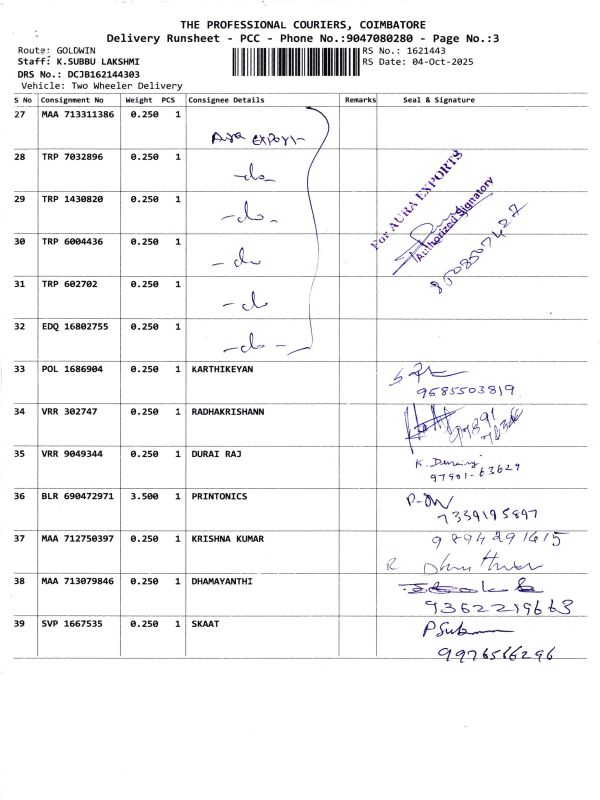 THE PROFESSIONAL COURIERS, COIMBATORE
Delivery Runsheet - PCC - Phone No.:9047080280 - Page No.:3
Route: GOLDWIN RS No.: 1621443
Staff: K.SUBBU LAKSHMI RS Date: 04-Oct-2025
DRS No.: DCJB162144303
Vehicle: Two Wheeler Delivery
S No Consignment No Weight PCS Consignee Details Remarks Seal & Signature
27 MAA 713311386 0.250 1
28 TRP 7032896 0.250 1 -do-
For AURA EXPORTS
Authorized Signatory
29 TRP 1430820 0.250 1 -do-
30 TRP 6004436 0.250 1 -do
8508507427
31 TRP 602702 0.250 1 -do
32 EDQ 16802755 0.250 1 -do-
33 POL 1686904 0.250 1 KARTHIKEYAN
9585503819
34 VRR 302747 0.250 1 RADHAKRISHANN
35 VRR 9049344 0.250 1 DURAI RAJ
97901-63629
36 BLR 690472971 3.500 1 PRINTONICS
7339195897
37 MAA 712750397 0.250 1 KRISHNA KUMAR 9894291615
38 MAA 713079846 0.250 1 DHAMAYANTHI
9362219663
39 SVP 1667535 0.250 1 SKAAT
9976566296